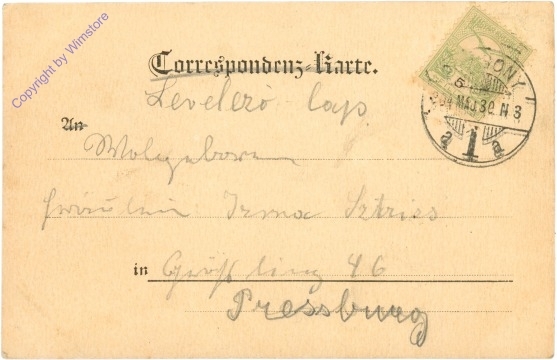 Copyright by Wimstore
Correspondenz-Karte.
Levelező lap
An
Wolgeboren
Fräulein Irma Sztriss
in
46
Pressburg
ZSONY
904 MÁJ 30 N 3
a 1 a